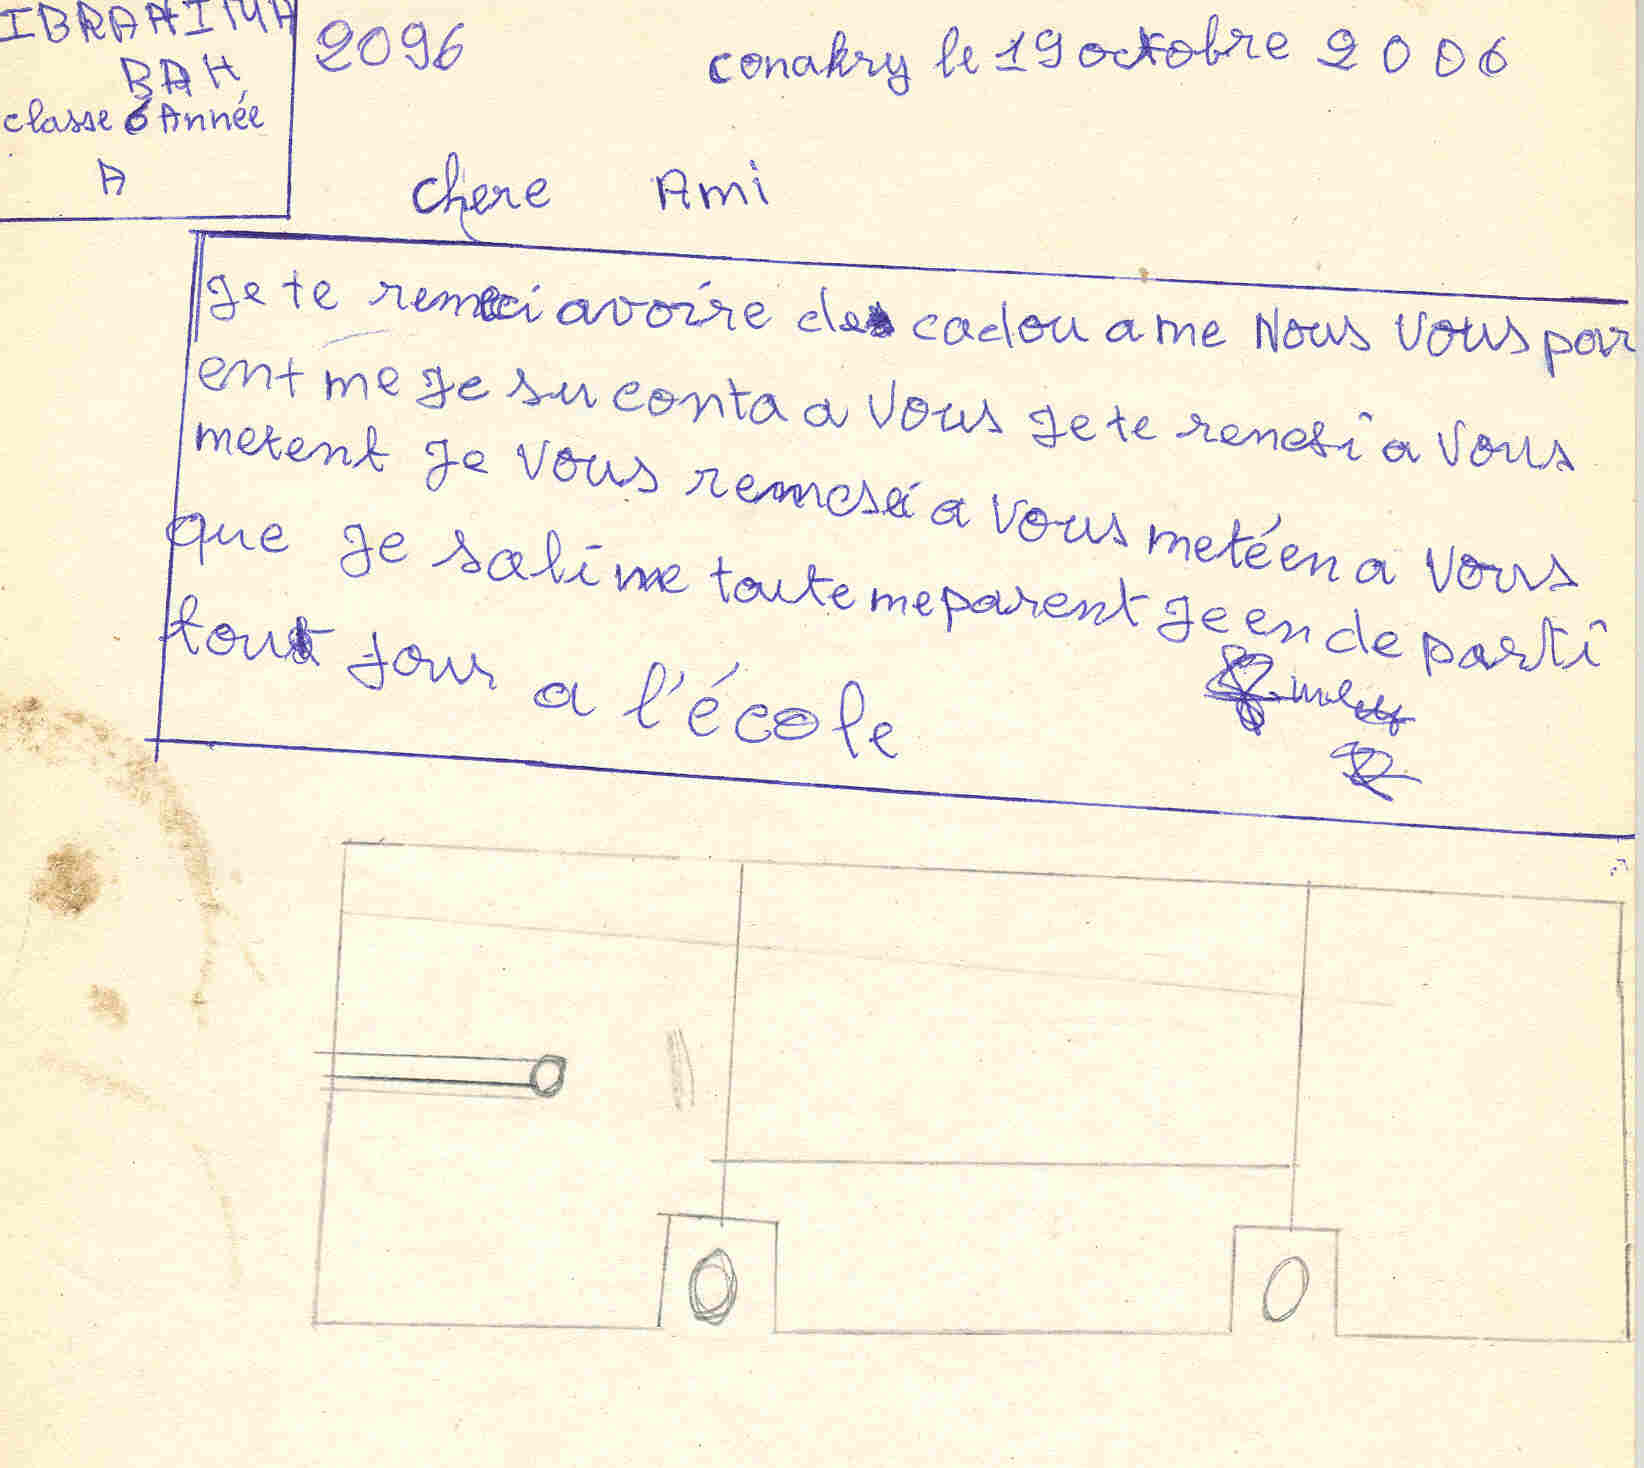 IBRAHIMA
BAH
classe 6 Année
A
2096
conakry le 19 octobre 2006
chere Ami
Je te remeci avoire des cadou a me Nous Vous par
ent me Je su conta a Vous Je te rencsi a Vous
metent Je Vous remcsé a Vous metéen a Vous
que Je salime toute me parent Je en de parti
tout jour a l'école